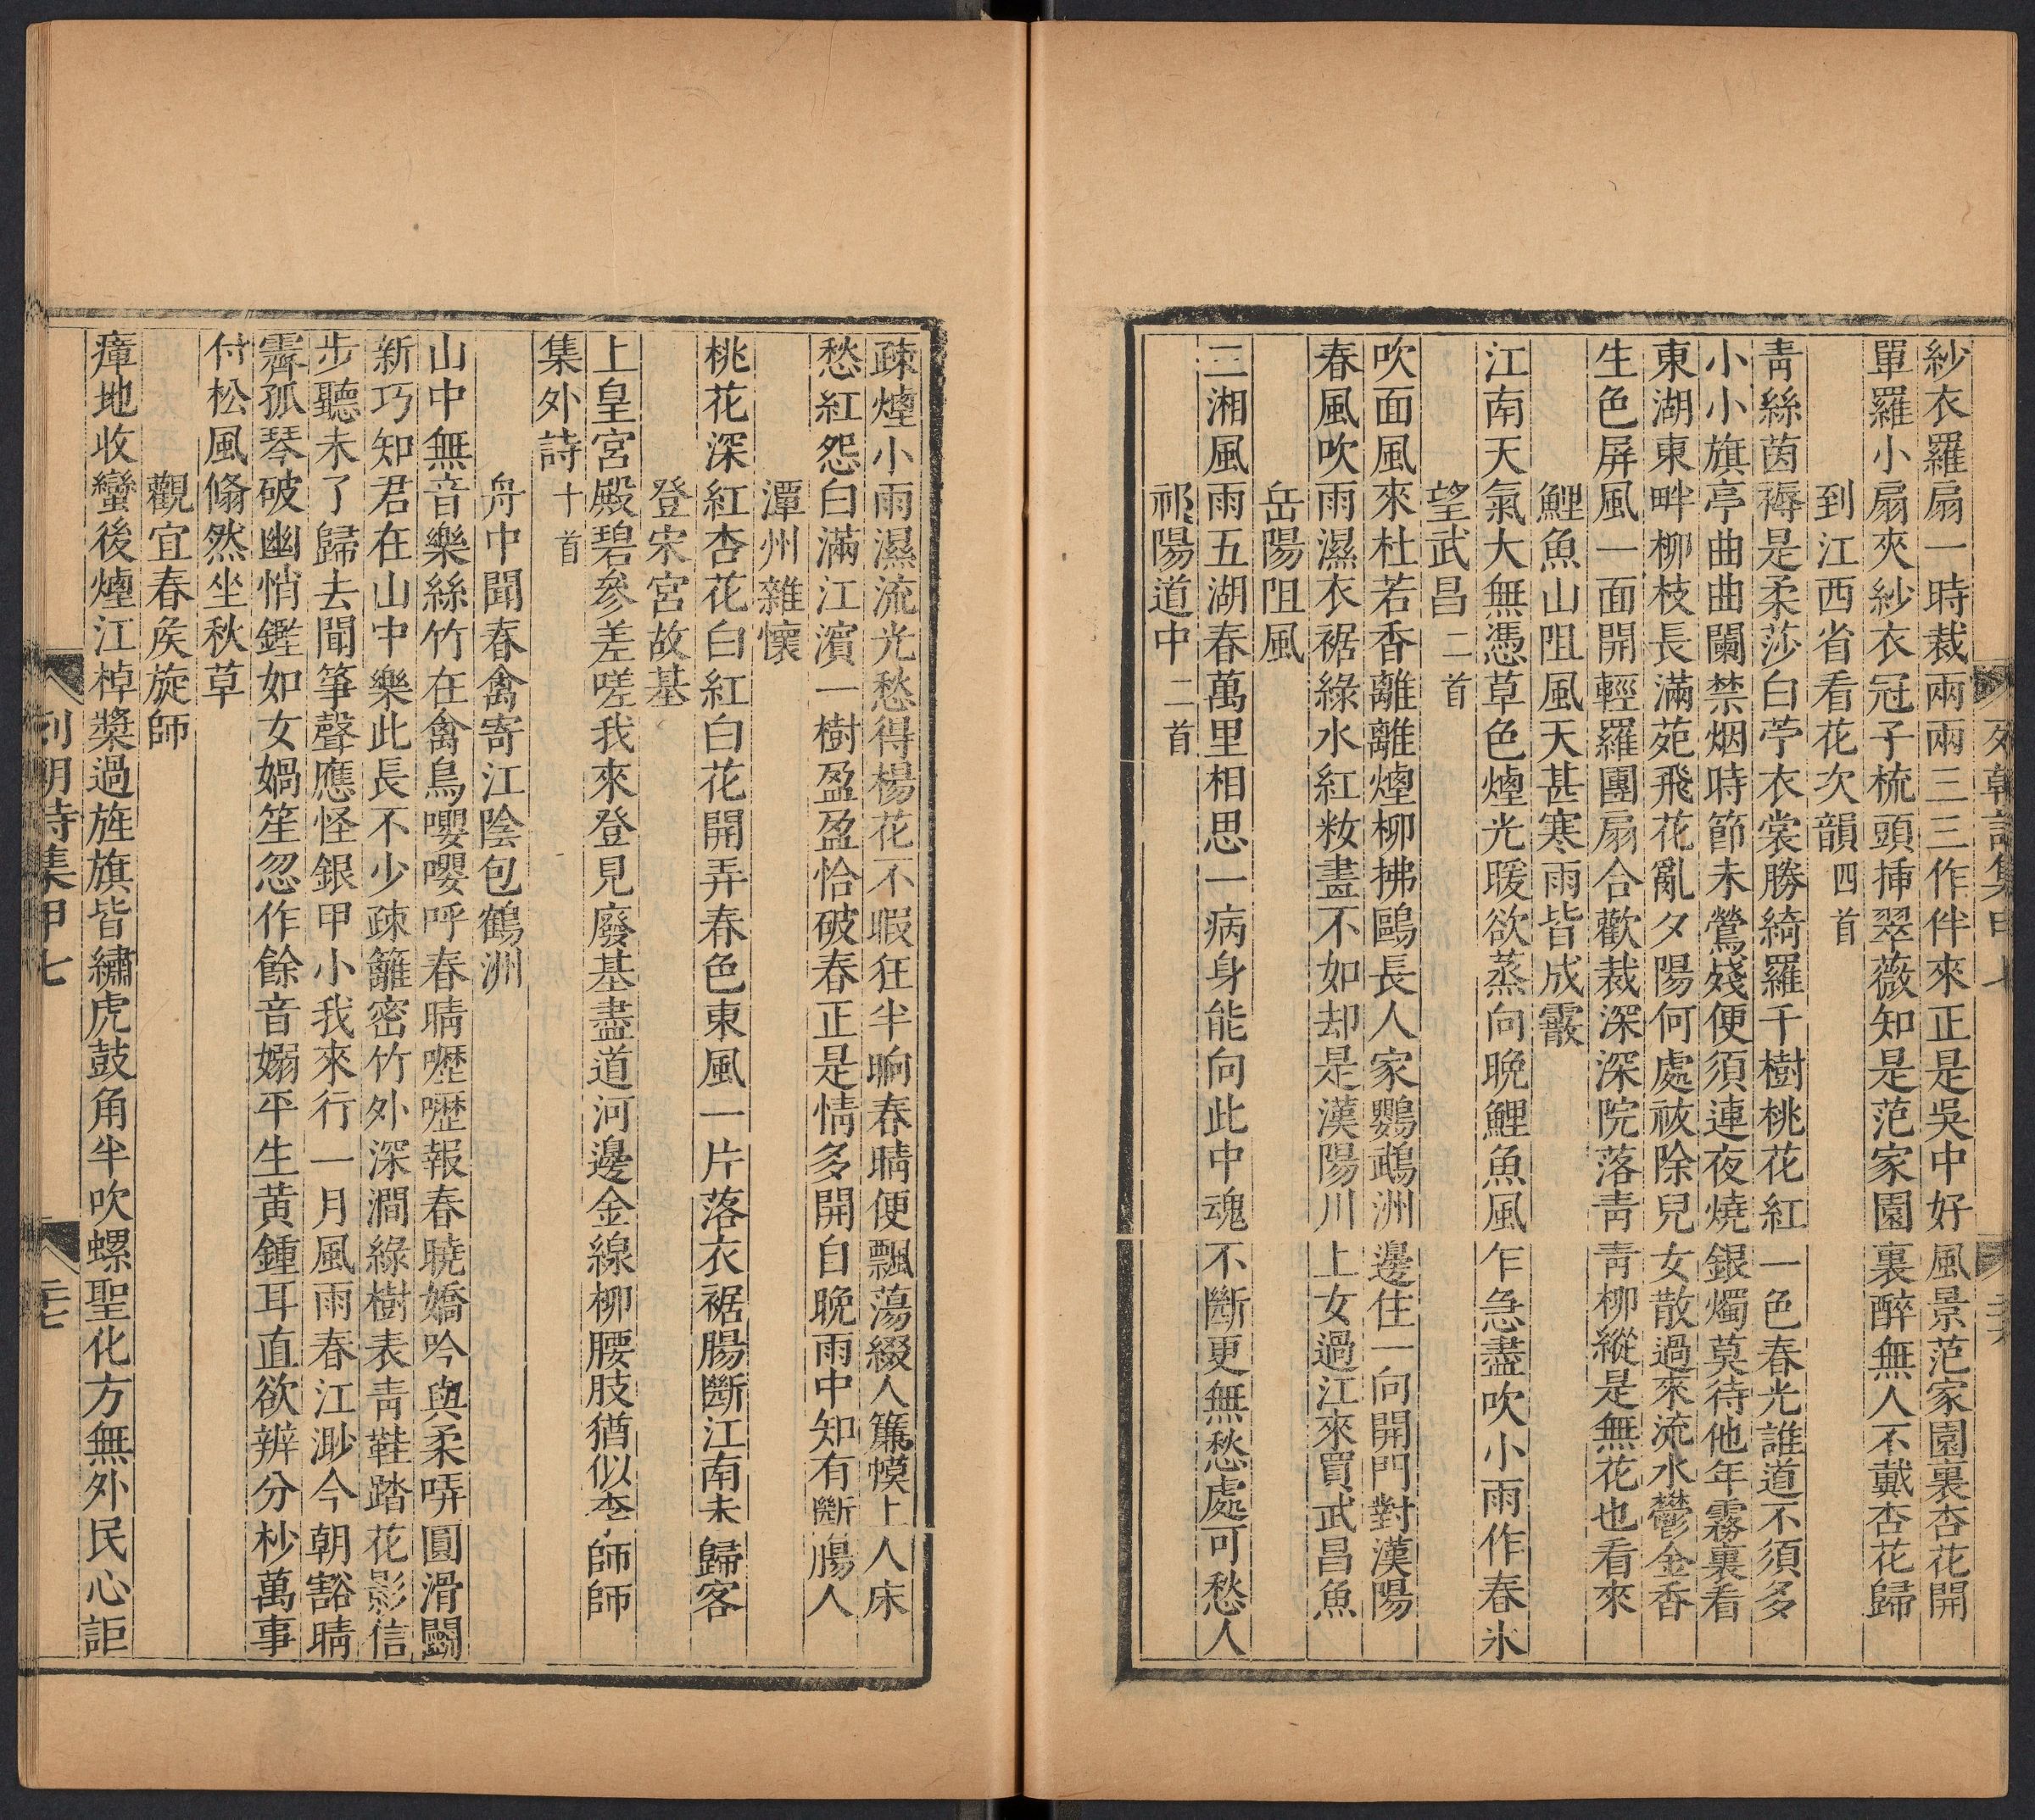 紗衣羅扇一時裁兩兩三三作伴來正是吳中好風景范家園裏杏花開
單羅小扇夾紗衣冠子梳頭揷翠薇知是范家園裏醉無人不戴杏花歸
到江西省看花次韻四首
青絲茵褥是柔莎白苧衣裳勝綺羅千樹桃花紅一色春光誰道不須多
小小旗亭曲曲闌禁烟時節未鶯殘便須連夜燒銀燭莫待他年霧裏看
東湖東畔柳枝長滿苑飛花亂夕陽何處祓除兒女散過來流水鬱金香
生色屏風一面開輕羅團扇合歡裁深深院落靑靑柳縱是無花也看來
鯉魚山阻風天甚寒雨皆成霰
江南天氣大無憑草色煙光暖欲蒸向晚鯉魚風乍急盡吹小雨作春氷
望武昌二首
吹面風來杜若香離離煙柳拂鷗長人家鸚鵡洲邊住一向開門對漢陽
春風吹雨濕衣裾綠水紅妝畫不如却是漢陽川上女過江來買武昌魚
岳陽阻風
三湘風雨五湖春萬里相思一病身能向此中魂不斷更無愁處可愁人
祁陽道中二首
疎煙小雨濕流光愁得楊花不暇狂半晌春晴便飄蕩綴人簾幙上人床
愁紅怨白滿江濱一樹盈盈恰破春正是情多開自晚雨中知有斷腸人
潭州雜懷
桃花深紅杏花白紅白花開弄春色東風一片落衣裾腸斷江南未歸客
登宋宮故基
上皇宮殿碧參差嗟我來登見廢基盡道河邊金線柳腰肢猶似李師師
集外詩十首
舟中聞春禽寄江陰包鶴洲
山中無音樂絲竹在禽鳥嚶嚶呼春晴嚦嚦報春曉嬌吟與柔哢圓滑鬬
新巧知君在山中樂此長不少疎籬密竹外深澗綠樹表青鞋踏花影信
步聽未了歸去聞箏聲應怪銀甲小我來行一月風雨春江渺今朝豁晴
霽孤琴破幽悄鏗如女媧笙忽作餘音嫋平生黃鍾耳直欲辨分杪萬事
付松風翛然坐秋草
觀宜春矦旋師
瘴地收蠻後煙江棹槳過旌旗皆繡虎鼓角半吹螺聖化方無外民心詎
列朝詩集甲七 二七